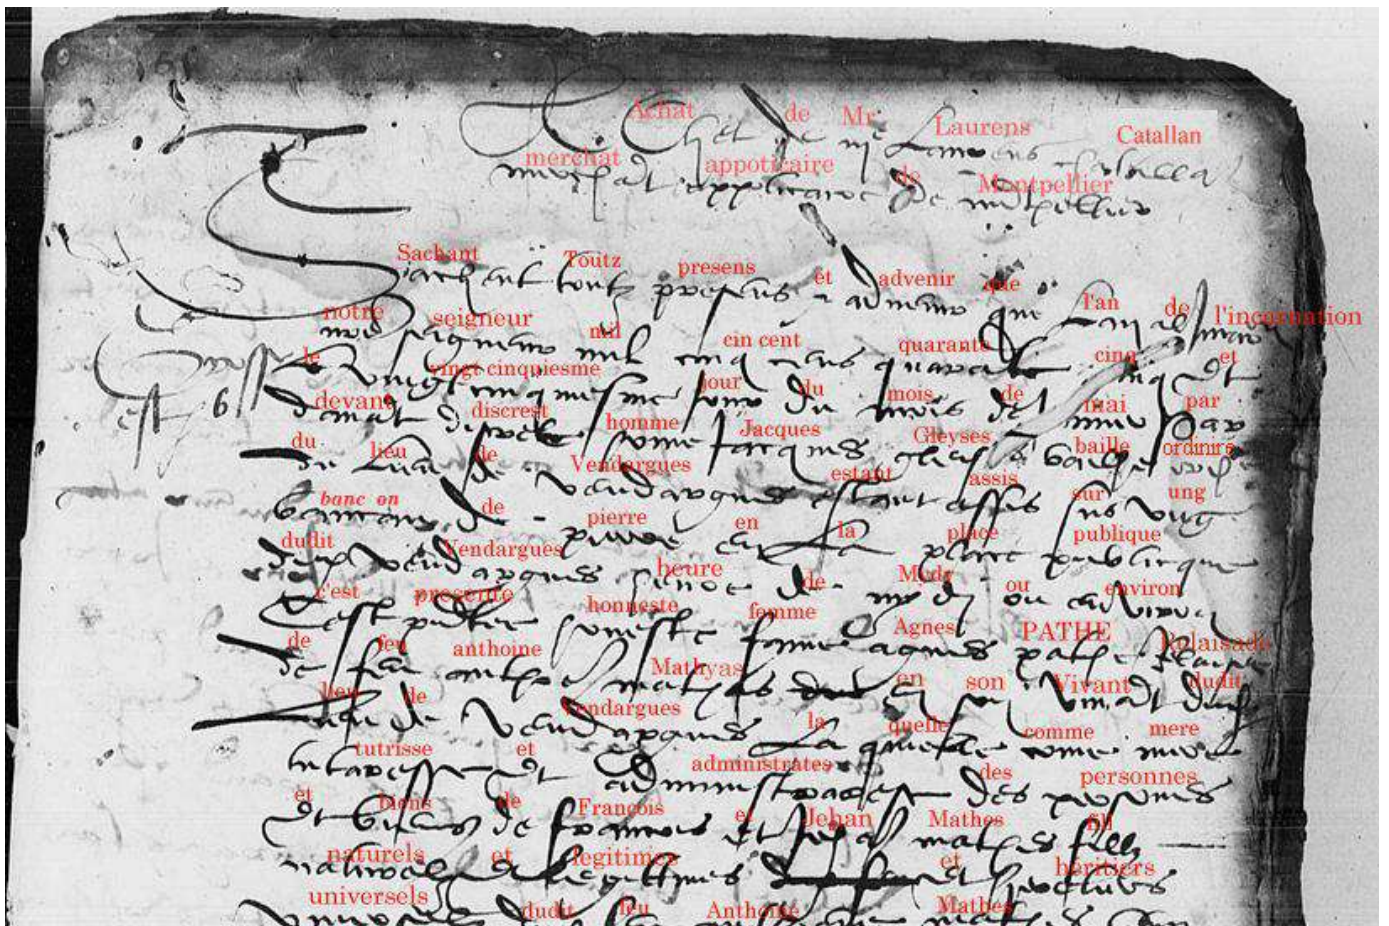 Achat de Mr Laurens Catallan
merchat appoticaire de Montpellier
Sachant Toutz presens et advenir que l'an de l'incarnation
notre seigneur mil cin cent quarante cinq et
le vingt cinquiesme jour du mois de mai par
devant discrest homme Jacques Gleyses baille ordinire
du lieu de Vendargues estant assis sur ung
banc on de pierre en la place publique
dudit Vendargues heure de Mydy ou environ
c'est presente honneste femme Agnes PATHE Relaisade
de feu anthoine Mathyas en son Vivant dudit
lieu de Vendargues la quelle comme mere
tutrisse et administrates des personnes
et biens de François et Jehan Mathes fili
naturels et legitimes et héritiers
universels dudit feu Anthoine Mathes